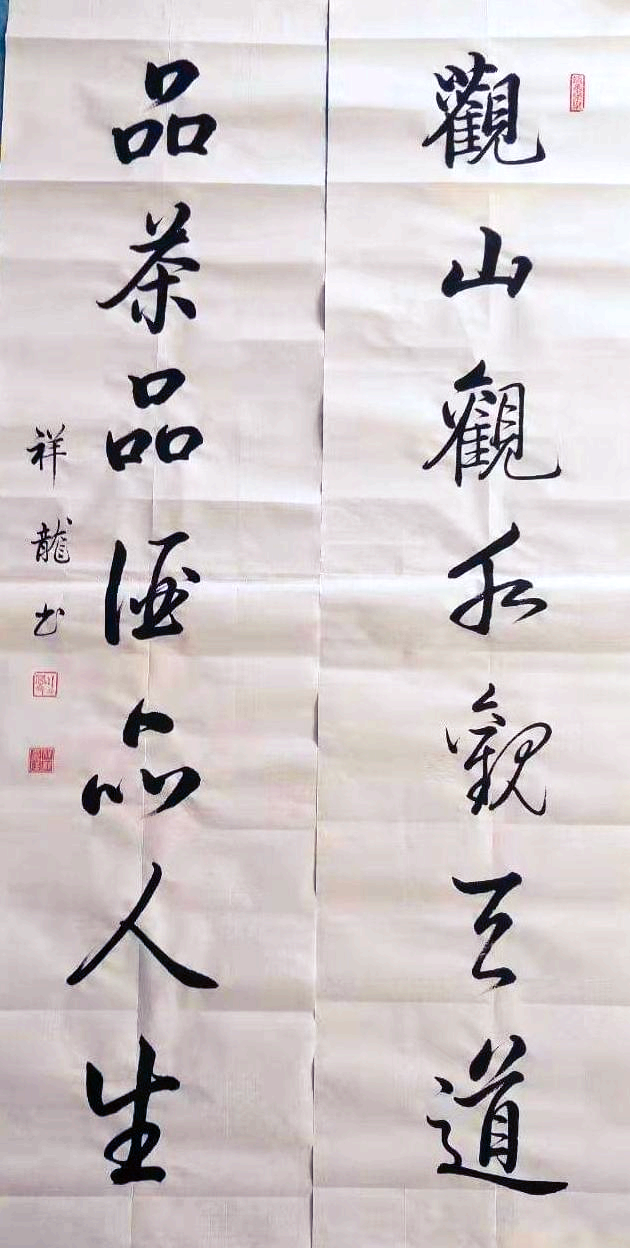 觀山觀水觀天道
品茶品酒品人生
祥龍书